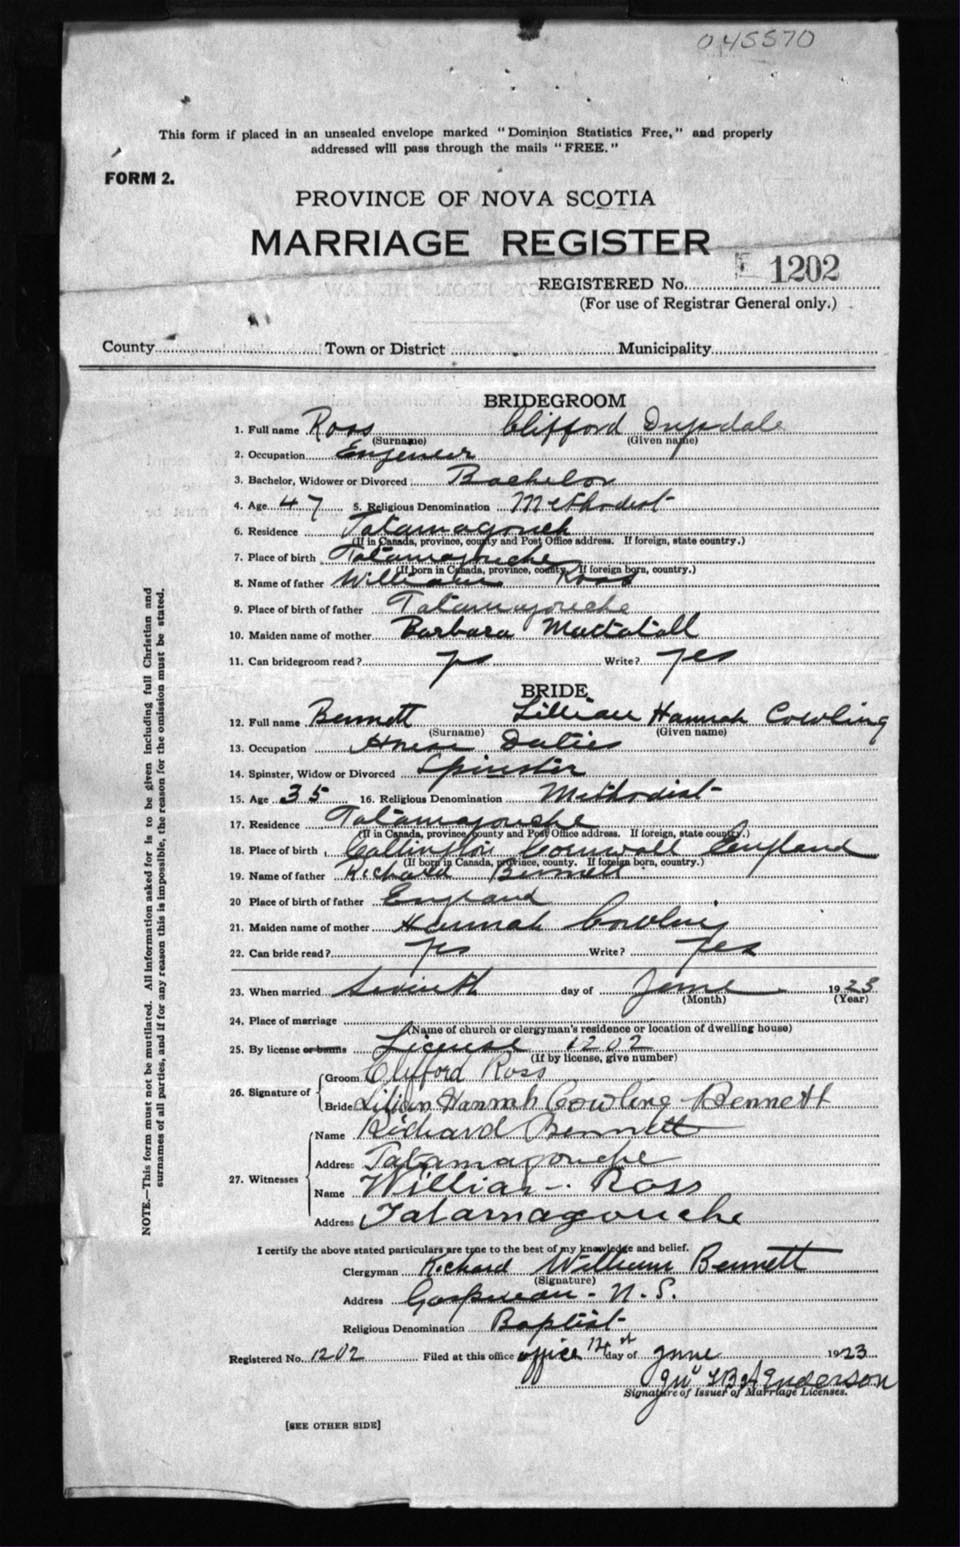 045570
This form if placed in an unsealed envelope marked "Dominion Statistics Free," and properly
addressed will pass through the mails "FREE."
FORM 2.
PROVINCE OF NOVA SCOTIA
MARRIAGE REGISTER
REGISTERED No. 1202
(For use of Registrar General only.)
County Town or District Municipality
BRIDEGROOM
1. Full name Ross Clifford Drysdale
(Surname) (Given name)
2. Occupation Engeneer
3. Bachelor, Widower or Divorced Bachelor
4. Age 47 5. Religious Denomination Methodist
6. Residence Tatamagouch
(If in Canada, province, county and Post Office address. If foreign, state country.)
7. Place of birth Tatamagouche
(If born in Canada, province, county. If foreign born, country.)
8. Name of father William Ross
9. Place of birth of father Tatamagouche
10. Maiden name of mother Barbara Mattatall
11. Can bridegroom read? yes Write? yes
BRIDE
12. Full name Bennett Lillian Hannah Cowling
(Surname) (Given name)
13. Occupation House Duties
14. Spinster, Widow or Divorced Spinster
15. Age 35 16. Religious Denomination Methodist
17. Residence Tatamagouche
(If in Canada, province, county and Post Office address. If foreign, state country.)
18. Place of birth Callington Cornwall England
(If born in Canada, province, county. If foreign born, country.)
19. Name of father Richard Bennett
20 Place of father England
21. Maiden name of mother Hannah Cowling
22. Can bride read? yes Write? yes
23. When married Seventh day of June 1923
(Month) (Year)
24. Place of marriage
(Name of church or clergyman's residence or location of dwelling house)
25. By license or banns License 1202
(If by license, give number)
26. Signature of Groom Clifford Ross
Bride Lilian Hannah Cowling Bennett
27. Witnesses Name Richard Bennett
Address Tatamagouche
Name William Ross
Address Tatamagouche
I certify the above stated particulars are true to the best of my knowledge and belief.
Clergyman Richard William Bennett
(Signature)
Address N.S.
Religious Denomination Baptist
Registered No. 1202 Filed at this office office day of June 1923
Anderson
Signature of Issuer of Marriage Licenses.
[SEE OTHER SIDE]
NOTE.—This form must not be mutilated. All information asked for is to be given including full Christian and
surnames of all parties, and if for any reason this is impossible, the reason for the omission must be stated.